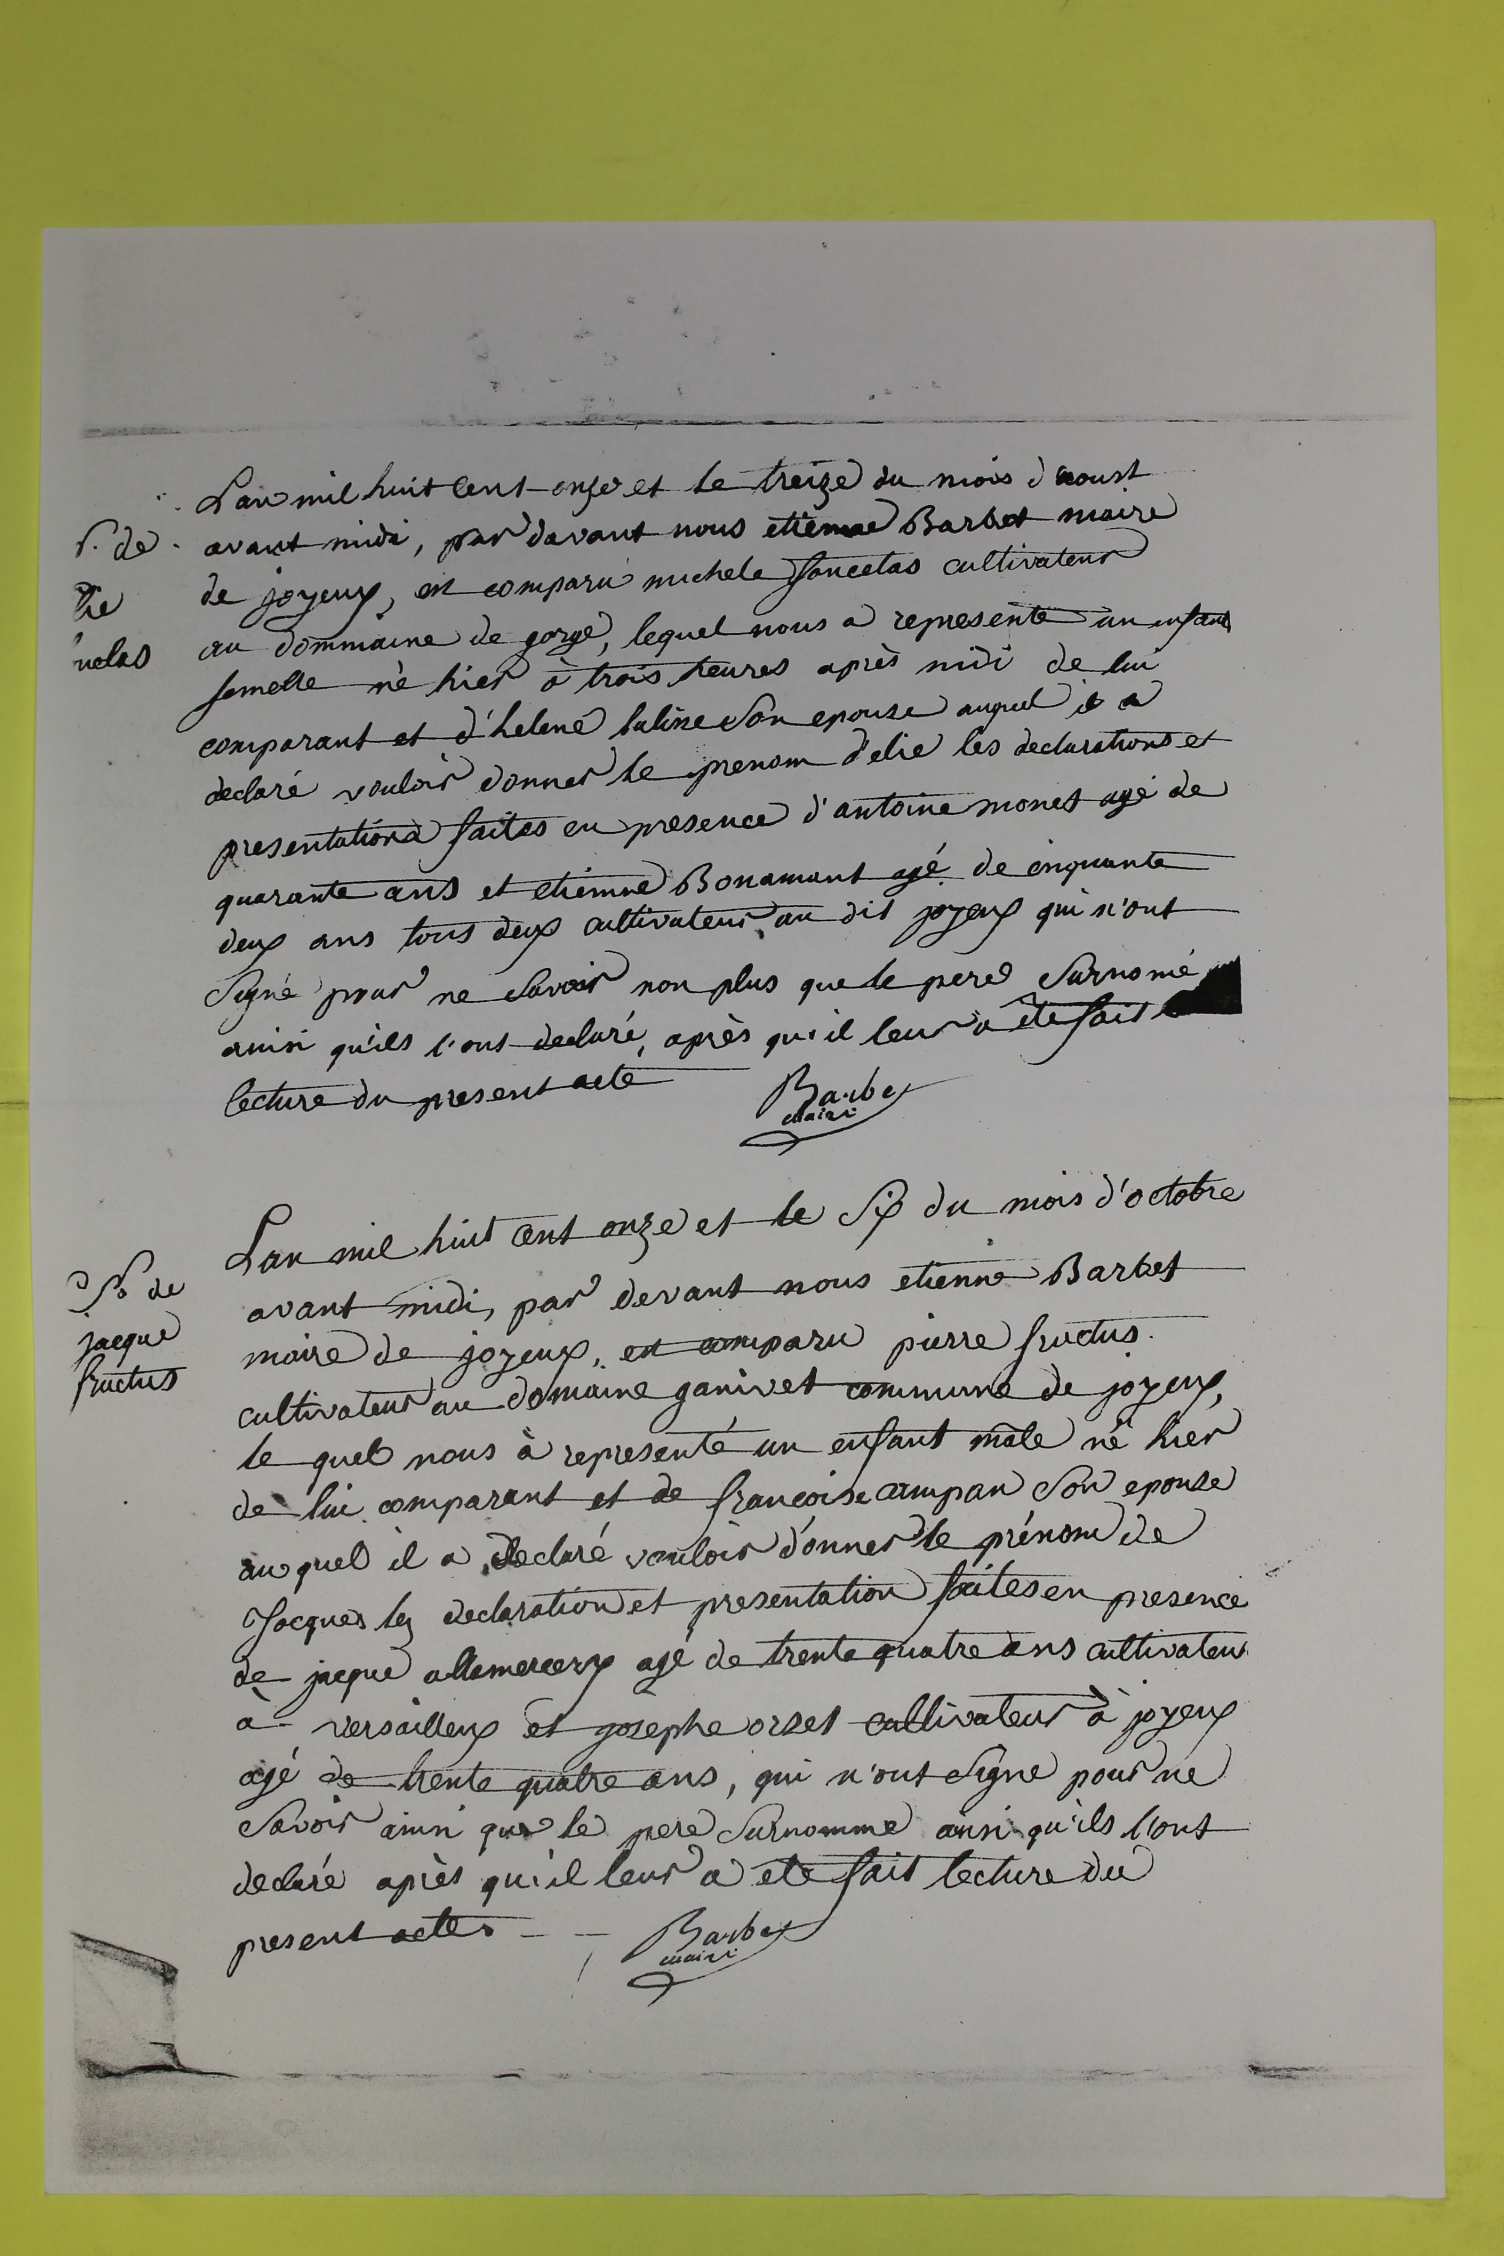 L'an mil huit cent onze et le treize du mois d'aoust
N. de
avant midi, par davant nous etienne Barbet maire
lie
de joyeux, est comparu michele foncelas cultivateur
ncelas
au dommaine de gorge, lequel nous a represente un enfant
femelle né hier à trois heures après midi de lui
comparant et d'helene son epouze auquel il a
declaré vouloir donner le prenom d'elie les declarations et
presentationd faites en presence d'antoine monet agé de
quarante ans et etienne Bonamant agé de cinquante
deux ans tous deux cultivateur au dit joyeux qui n'ont
Signé pour ne Savoir non plus que le pere Surnomé
ainsi qu'ils l'ont declaré, après qu'il leur a ete fait
lecture du present acte
Barbet
maire
L'an mil huit cent onze et le Six du mois d'octobre
N. de
avant midi, par devant nous etienne Barbet
jacque
maire de joyeux, est comparu pierre fructus.
fructus
cultivateur au domaine ganivet commune de joyeux,
le quel nous à representé un enfant mâle né hier
de lui comparant et de françoise campan Son epouze
auquel il a declaré vouloir donner le prénom de
Jacques les declaration et presentation faites en presence
de jacque allemercery agé de trente quatre ans cultivateur
à versailleux et josephe orset cultivateur à joyeux
agé de trente quatre ans, qui n'ont Signé pour ne
Savoir ainsi que le pere Surnommé ainsi qu'ils l'ont
declaré après qu'il leur a ete fait lecture du
present actes
Barbet
maire